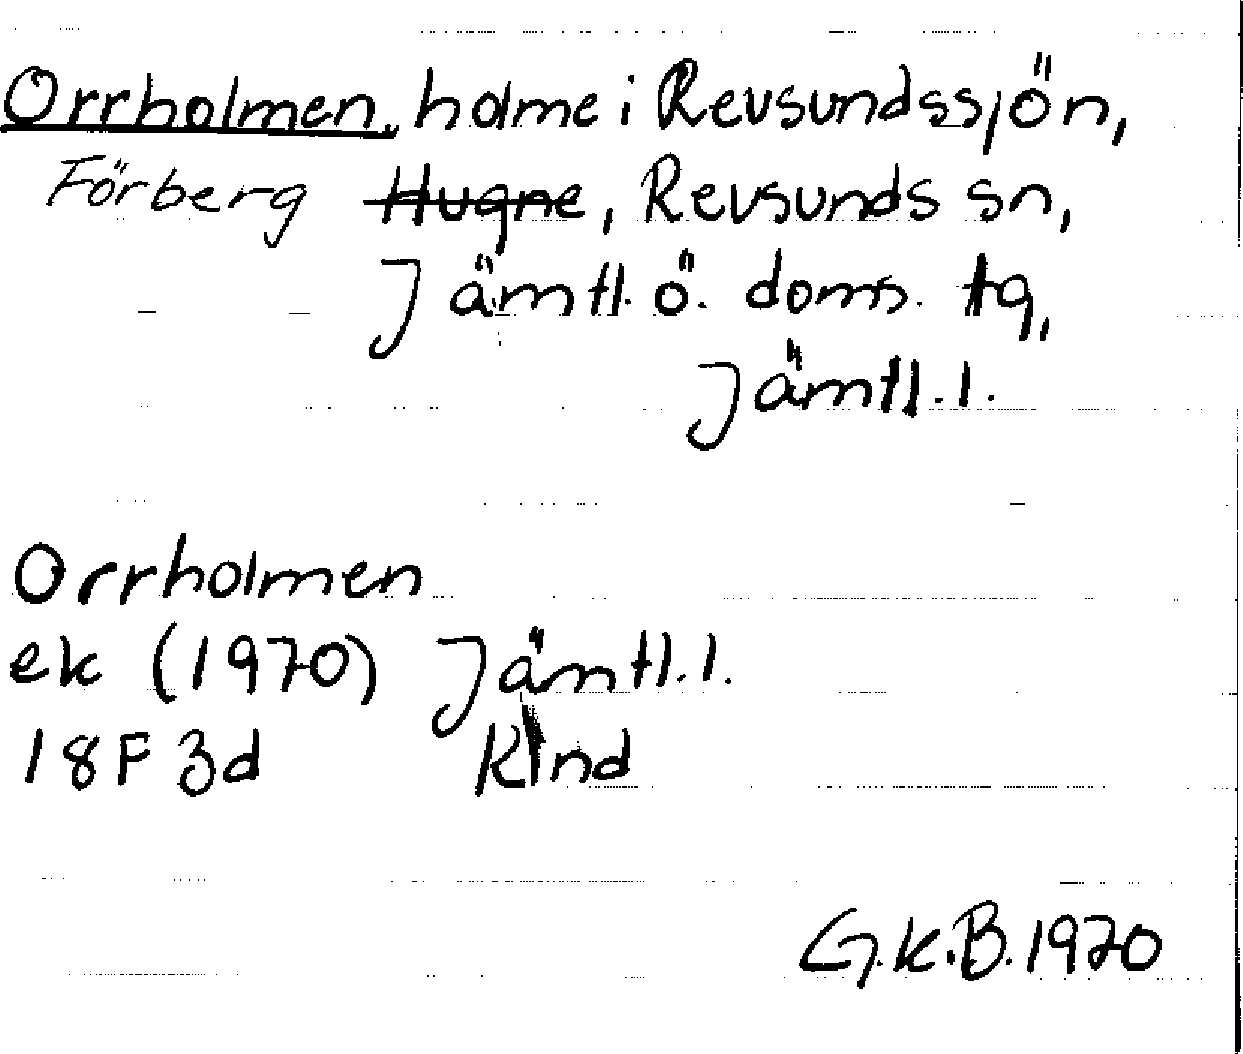 Orrholmen, holme i Revsundssjön,
Förberg Hugne, Revsunds sn,
Jämtl. ö. doms. tg,
Jämtl. l.
Orrholmen
ek (1970) Jämtl. l.
18F 3d Kind
G.K.B. 1970